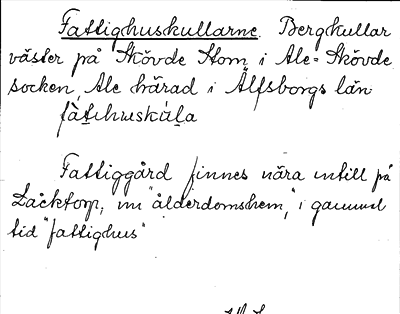 Fattighuskullarne. Bergkullar
väster på Skövde Hom, i Ale-Skövde
socken, Ale härad i Älfsborgs län
Fattiggård finnes nära intill på
nu "ålderdomshem," i gammal
tid "fattighus"